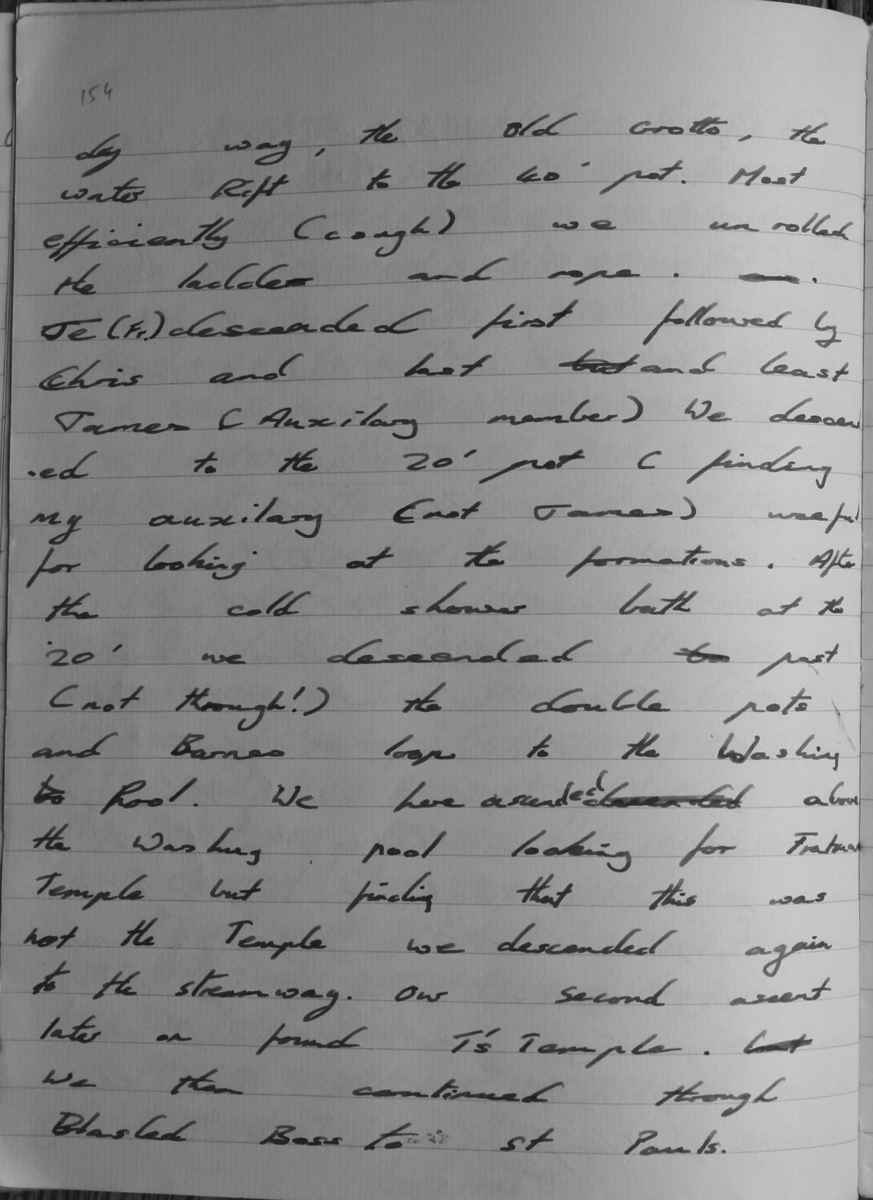 154
dry way, the old Grotto, the
water Rift to the 40' pot. Most
efficiently (cough) we unrolled
the ladder and rope.
Je (Fr.) descended first followed by
Chris and last but and least
James (Auxilary member) We descen
.ed to the 20' pot (finding
my auxilary (not James) useful
for looking at the formations. After
the cold shower bath at the
20' we descended to past
(not through!) the double pots
and Barnes loop to the Washing
to Pool. We here ascended descended above
the Washing pool looking for Tratman
Temple but finding that this was
not the Temple we descended again
to the streamway. Our second ascent
later on found T's Temple. but
We then continued through
Blasted Boss to St Pauls.